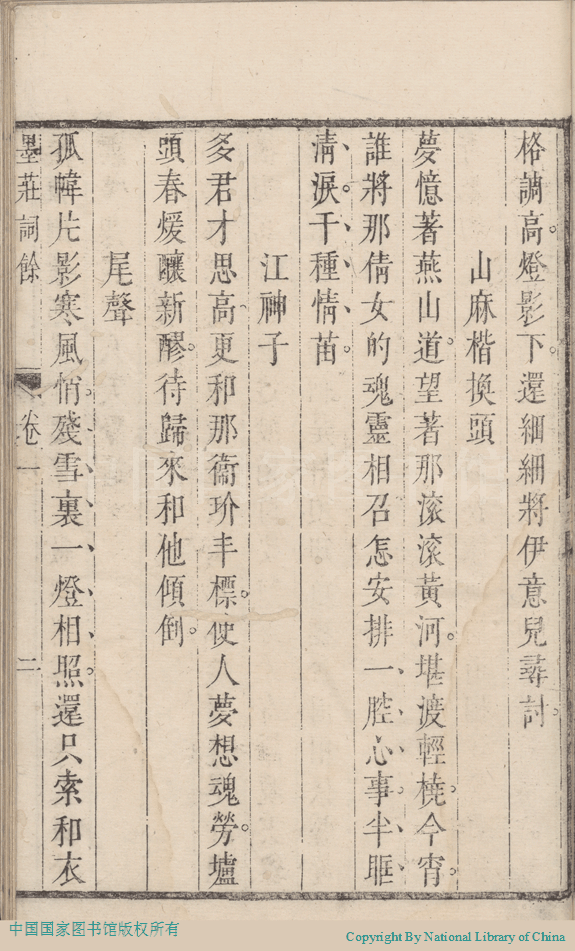 格調高。燈影下。還細細將伊意兒尋討。
山麻楷換頭
夢憶著燕山道。望著那滾滾黃河。堪渡輕橈。今宵
誰將那倩女的魂靈相召。怎安排一腔心事。半眶
清淚。千種情苗。
江神子
多君才思高。更和那衞玠丰標。使人夢想魂勞。壚
頭春煖釀新醪。待歸來和他傾倒。
尾聲
孤幃片影寒風悄。殘雪裏一燈相照。還只索和衣
墨莊詞餘 卷一 二
中国国家图书馆版权所有
Copyright By National Library of China